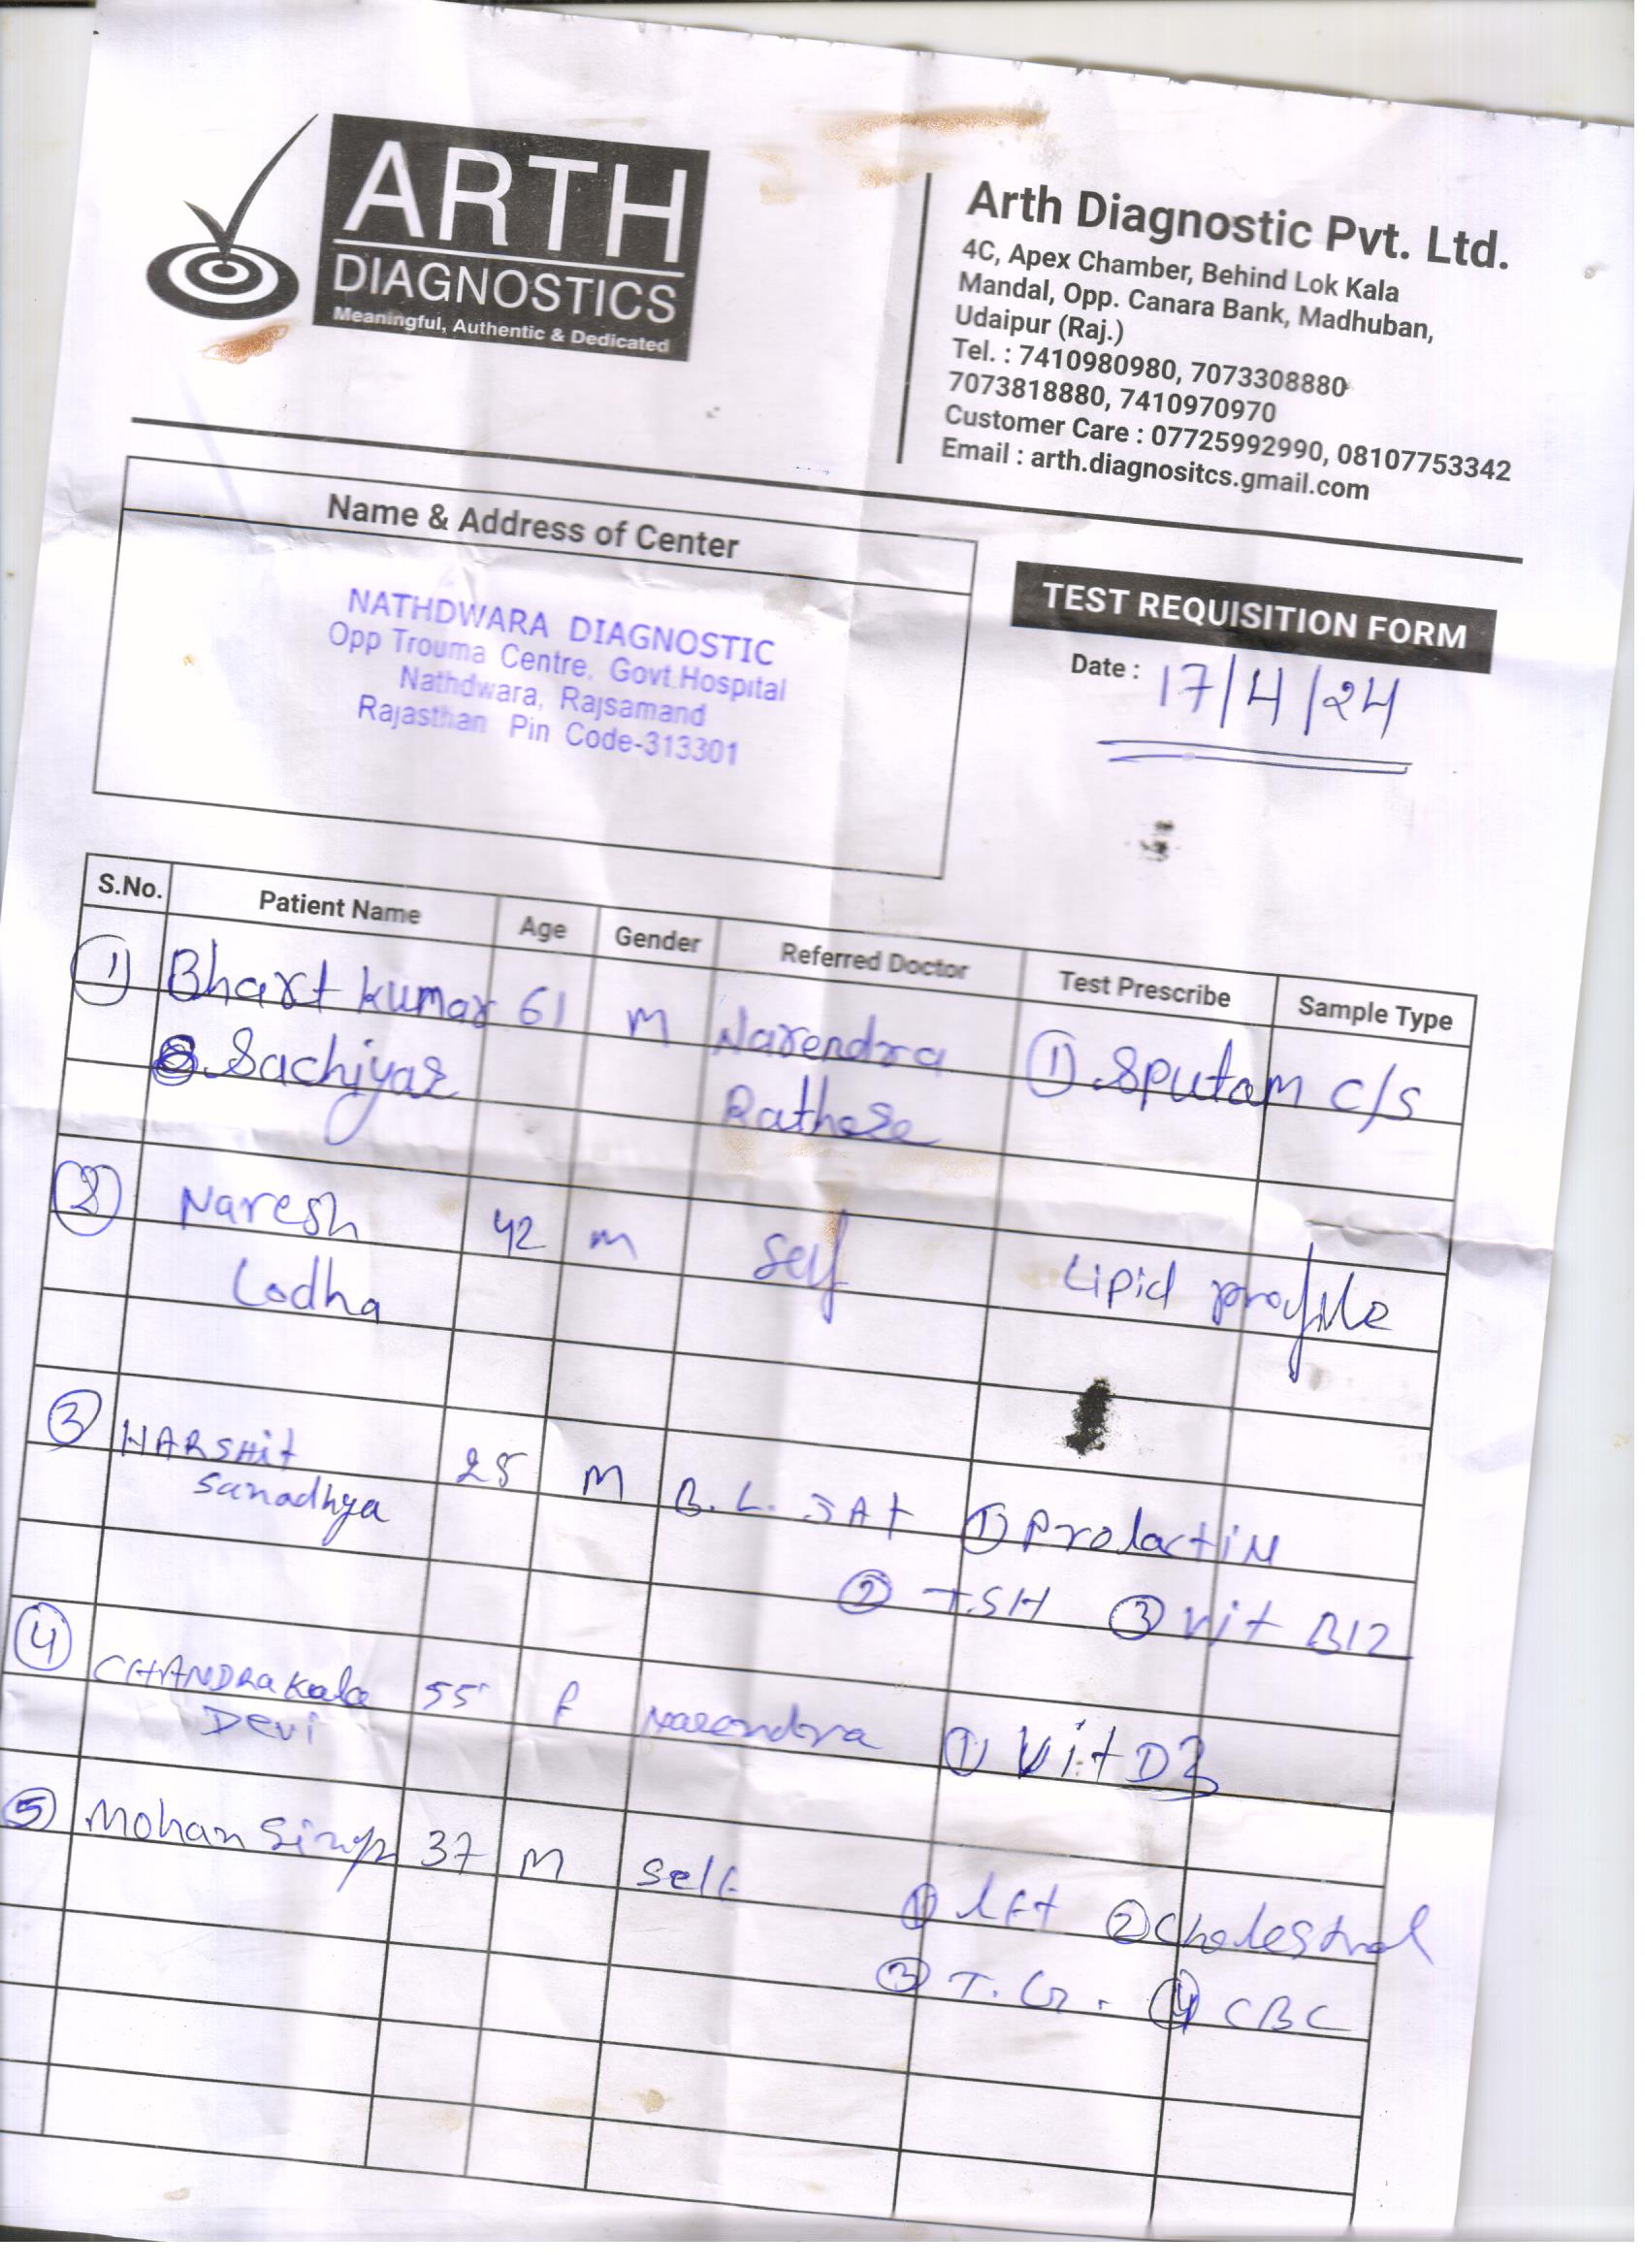 ARTH
DIAGNOSTICS
Meaningful, Authentic & Dedicated
Arth Diagnostic Pvt. Ltd.
4C, Apex Chamber, Behind Lok Kala
Mandal, Opp. Canara Bank, Madhuban,
Udaipur (Raj.)
Tel. : 7410980980, 7073308880
7073818880, 7410970970
Customer Care : 07725992990, 08107753342
Email : arth.diagnositcs.gmail.com
Name & Address of Center
NATHDWARA DIAGNOSTIC
Opp Trouma Centre, Govt.Hospital
Nathdwara, Rajsamand
Rajasthan Pin Code-313301
TEST REQUISITION FORM
Date : 17/4/24
S.No. Patient Name Age Gender Referred Doctor Test Prescribe Sample Type
1 Bhart kumar 61 M Narendra 1 Sputam C/S
Sachiyar Rathore
2 Naresh 42 M Self Lipid profile
Lodha
3 HARSHit 25 M B. L. JAt 1 Prolactin
Sanadhya
2 TSH 3 Vit B12
4 CHANDRAkala 55 F Narendra 1 Vit D3
Devi
5 Mohan Singh 37 M Self 1 lft 2 Cholestrol
3 T.G. 4 CBC